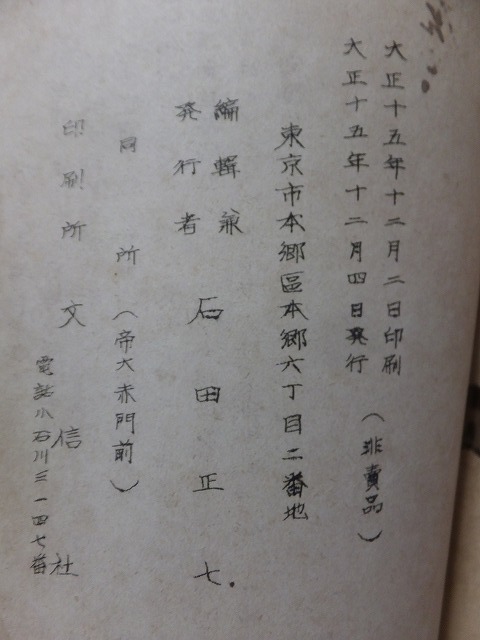 大正十五年十二月二日印刷
大正十五年十二月四日発行
（非賣品）
東京市本郷區本郷六丁目二番地
編輯兼
発行者
石田正七
同所（帝大赤門前）
印刷所文信社
電話小石川三一四七番